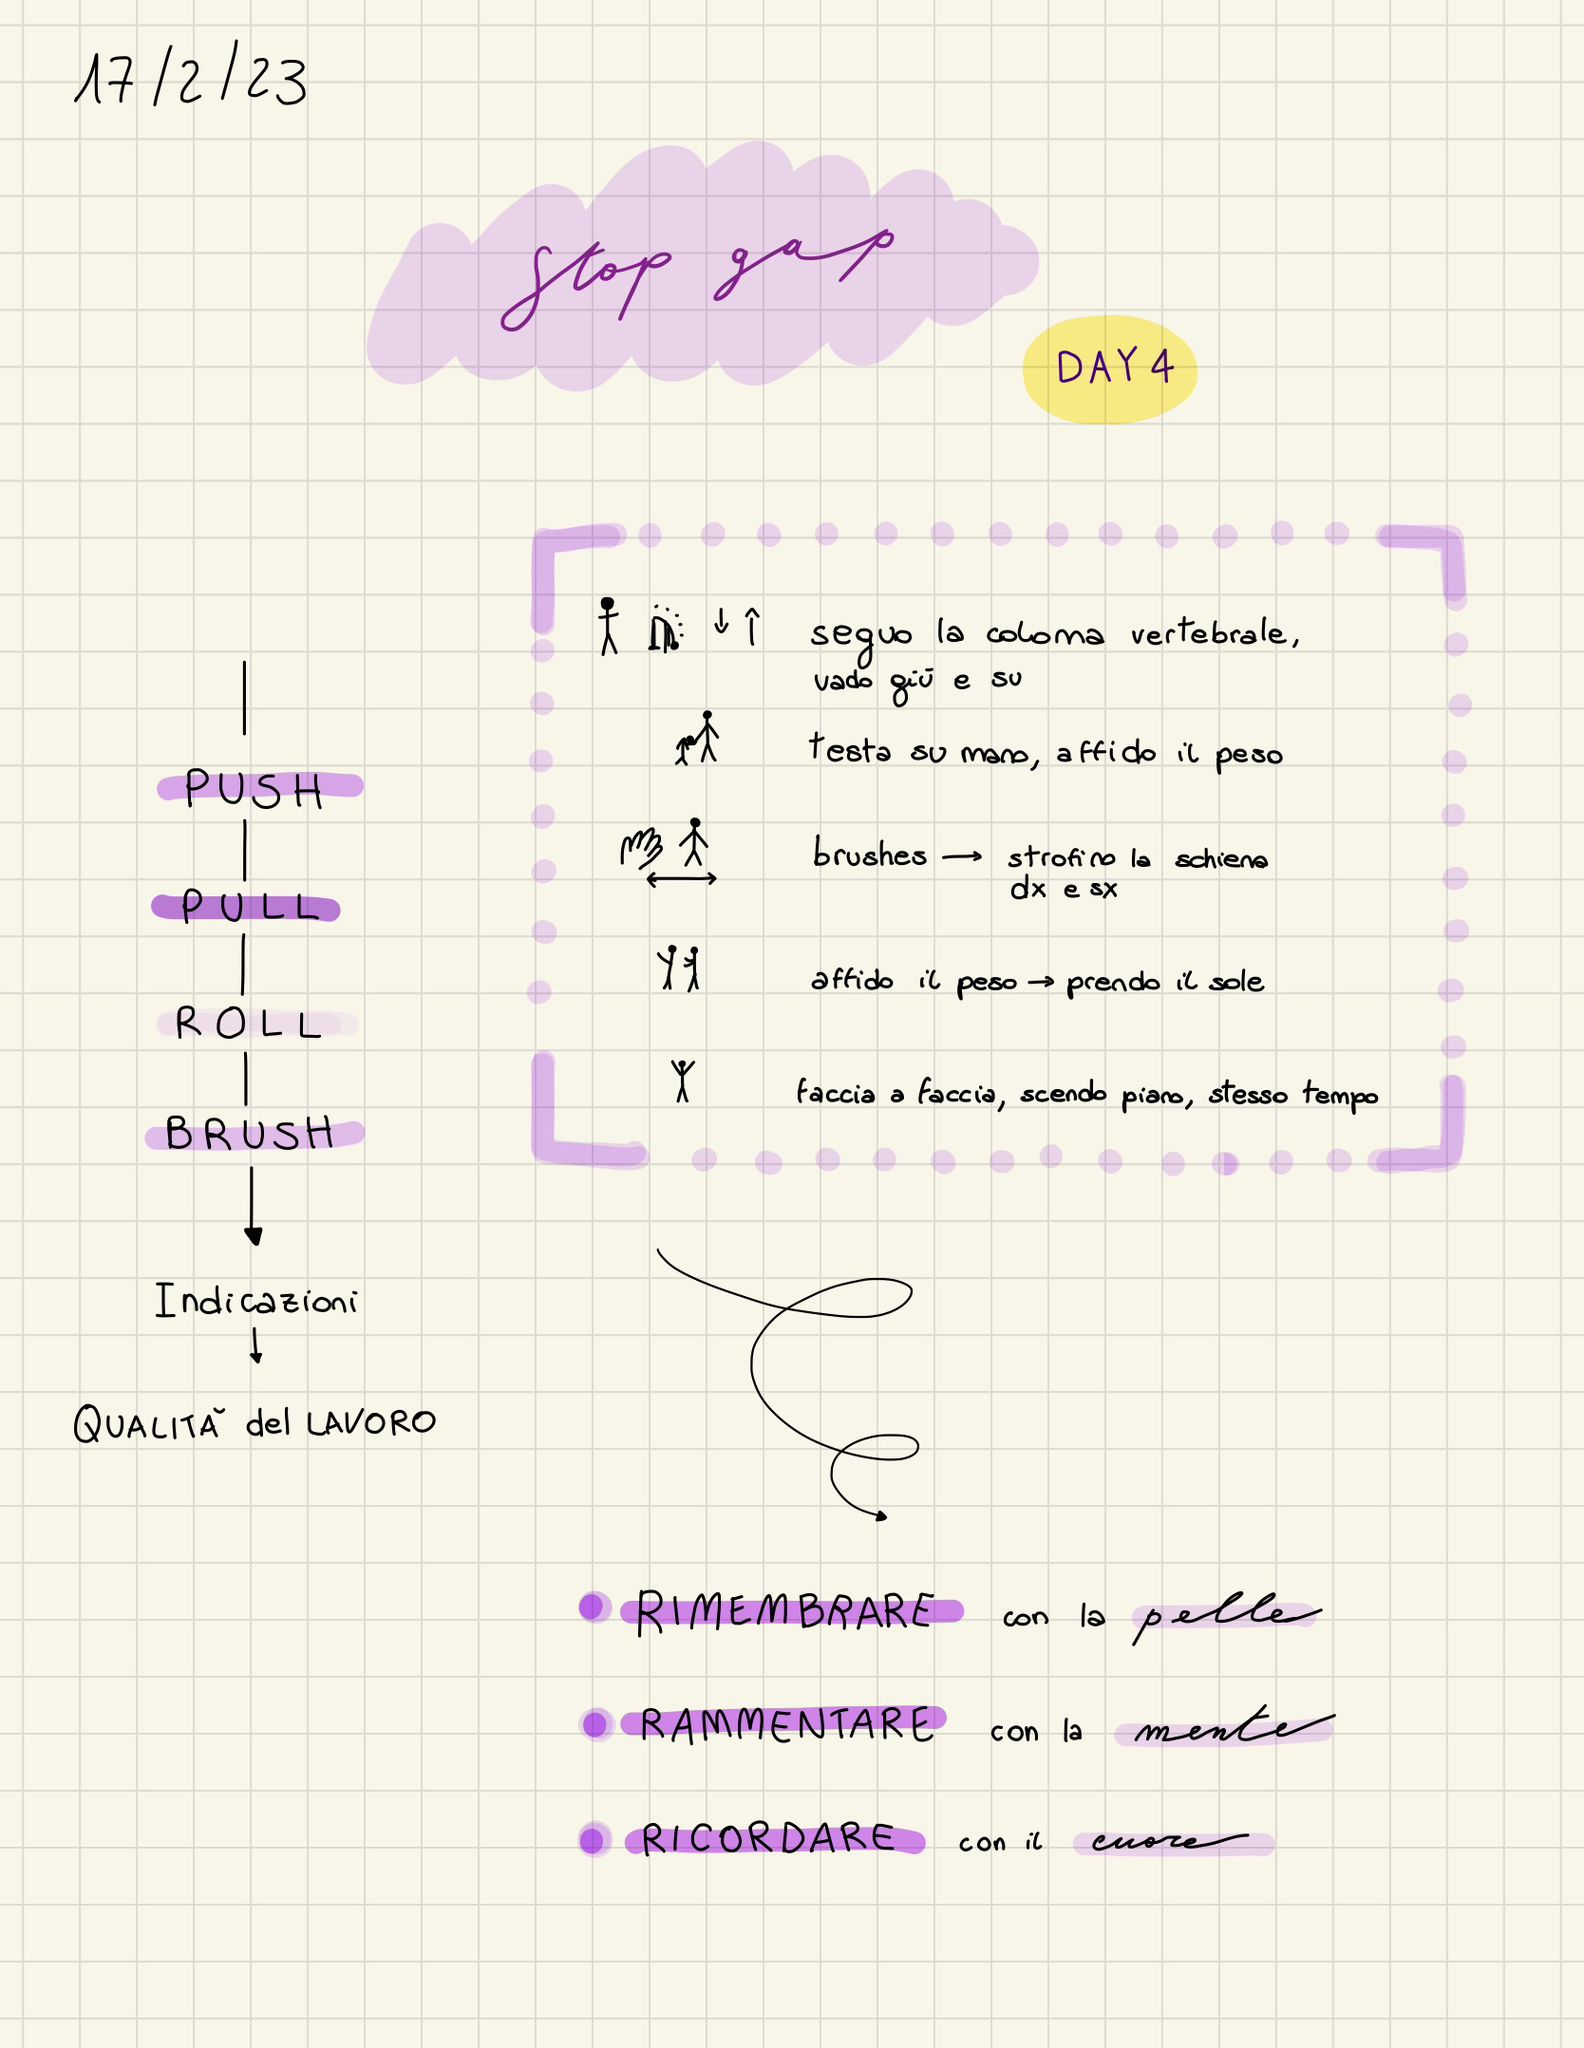 17/2/23
stop gap
DAY 4
PUSH
PULL
ROLL
BRUSH
Indicazioni
QUALITÀ del LAVORO
seguo la coloma vertebrale,
vado giù e su
testa su mano, affido il peso
brushes → strofino la schiena
dx e sx
affido il peso → prendo il sole
faccia a faccia, scendo piano, stesso tempo
RIMEMBRARE con la pelle
RAMMENTARE con la mente
RICORDARE con il cuore